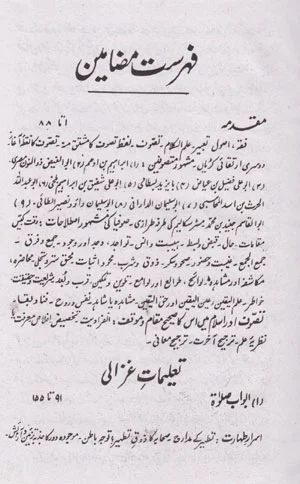 فہرست مضامین
مقدمہ ۱ تا ۸۸
فقہ، اصول تعبیر، علم الکلام، تصوف۔ لفظ تصوف کا مشتق منہ۔ تصوف کا نقطۂ آغاز
دوسری ارتقائی کڑیاں۔ مشہور متصوفین: (۱) ابراہیم بن ادہم (۲) ابو الفیض ذوالنون مصری
(۳) ابو علی فضیل بن عیاض (۴) بایزید بسطامی (۵) ابو علی شفیق بن ابراہیم بلخی (۶) ابو عبداللہ
الحرث بن اسد المحاسبی (۷) ابو سلیمان الدارانی (۸) ابو سلیمان داؤد بن نصیر الطائی (۹)
ابو القاسم جنید بن محمد کی طرفہ طرازی۔ صوفیا کی مشہور اصطلاحات: وقت کیں
مقامات۔ حال۔ قبض و بسط۔ ہیبت و انس۔ تواجد، وجد اور وجود۔ جمع و فرق۔
جمع الجمع۔ غیبت و حضور۔ صحو و سکر۔ ذوق و شرب۔ محو و اثبات۔ ستر و تجلی۔ محاضرہ،
مکاشفہ اور مشاہدہ۔ لوائح، طوالع اور لوامع۔ تلوین و تمکین۔ قرب و بعد۔ شریعت و حقیقت
خواطر۔ علم الیقین، عین الیقین اور حق الیقین۔ نفس و روح۔ فنا و بقا۔
تصوف اور اسلام میں اس کا صحیح مقام و موقف: انفرادیت۔ تخصیص
نظریۂ علم۔ ترجیح آخرت۔ ترجیح معانی۔
تعلیماتِ غزالی
(۱) ابواب صلوٰۃ ۹۱ تا ۱۵۵
اسرار طہارت: تطہیر کے مدارج۔ صحابہ کا ذوقِ تطہیر۔ توجہ باطن۔ موجودہ دور کا جذبۂ تزیین و آرائش۔